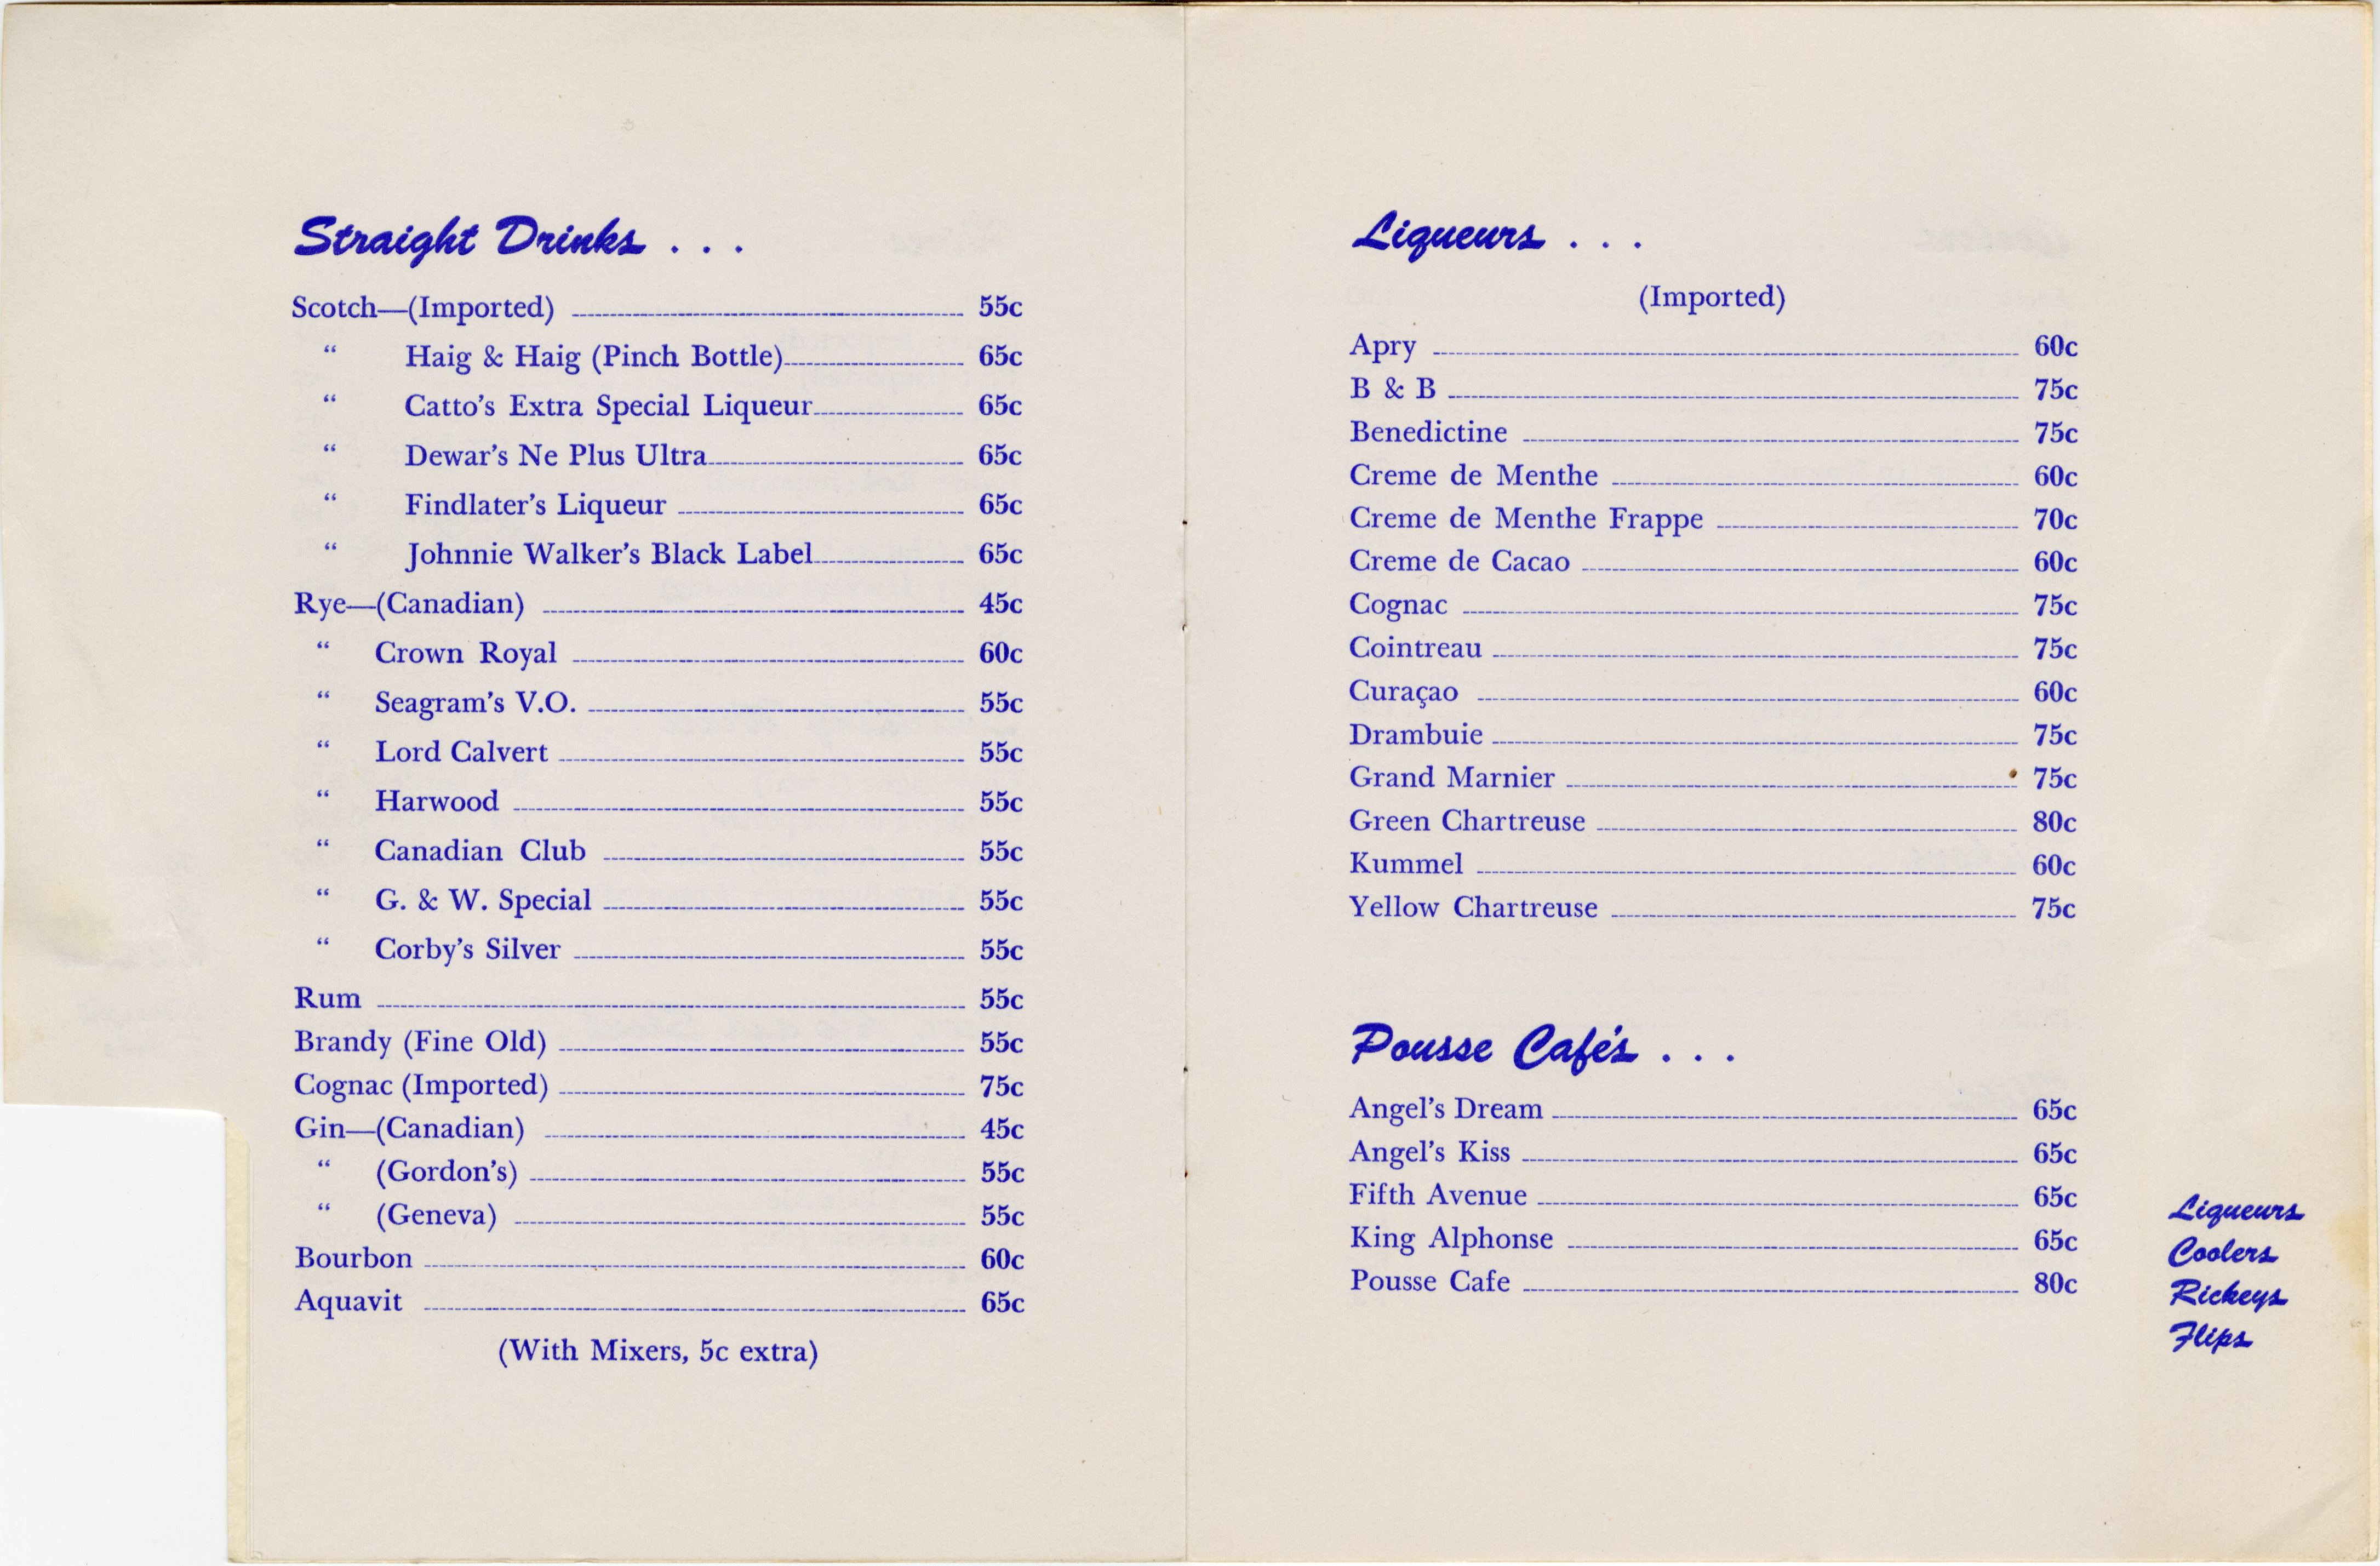 Straight Drinks . . .
Scotch—(Imported) 55c
“ Haig & Haig (Pinch Bottle) 65c
“ Catto’s Extra Special Liqueur 65c
“ Dewar’s Ne Plus Ultra 65c
“ Findlater’s Liqueur 65c
“ Johnnie Walker’s Black Label 65c
Rye—(Canadian) 45c
“ Crown Royal 60c
“ Seagram’s V.O. 55c
“ Lord Calvert 55c
“ Harwood 55c
“ Canadian Club 55c
“ G. & W. Special 55c
“ Corby’s Silver 55c
Rum 55c
Brandy (Fine Old) 55c
Cognac (Imported) 75c
Gin—(Canadian) 45c
“ (Gordon’s) 55c
“ (Geneva) 55c
Bourbon 60c
Aquavit 65c
(With Mixers, 5c extra)
Liqueurs . . .
(Imported)
Apry 60c
B & B 75c
Benedictine 75c
Creme de Menthe 60c
Creme de Menthe Frappe 70c
Creme de Cacao 60c
Cognac 75c
Cointreau 75c
Curaçao 60c
Drambuie 75c
Grand Marnier 75c
Green Chartreuse 80c
Kummel 60c
Yellow Chartreuse 75c
Pousse Café's . . .
Angel’s Dream 65c
Angel’s Kiss 65c
Fifth Avenue 65c
King Alphonse 65c
Pousse Cafe 80c
Liqueurs
Coolers
Rickeys
Flips